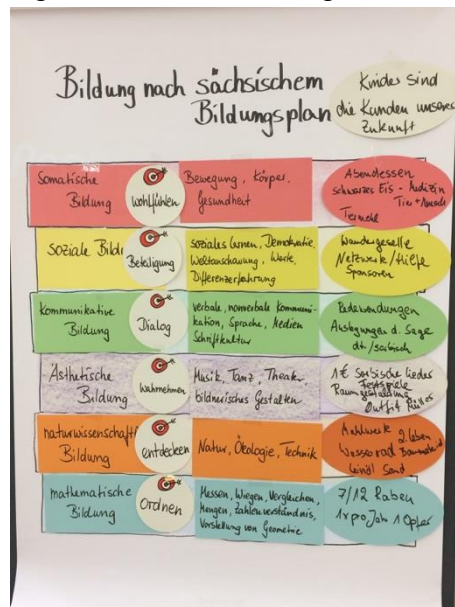 Bildung nach sächsischem
Bildungsplan
Kinder sind
die Kunden unserer
Zukunft
Somatische
Bildung
wohlfühlen
Bewegung, Körper,
Gesundheit
Abendessen
schwarzes Eis - Medizin
Tier + Mensch
Soziale Bild
Beteiligung
soziales Lernen, Demokratie
Weltanschauung, Werte,
Differenzerfahrung
Wandergeselle
Netzwerk/Hilfe
Sponsoren
Kommunikative
Bildung
Dialog
verbale, nonverbale Kommuni-
kation, Sprache, Medien
Schriftkultur
Redewendungen
d. Sage
dt/sorbisch
Ästhetische
Bildung
Wahrnehmen
Musik, Tanz, Theater
bildnerisches Gestalten
1€ Sorbische Lieder
Festspiele
Raumgestaltung
Outfit
naturwissenschaft
Bildung
entdecken
Natur, Ökologie, Technik
Mahlwerk
Wasserrad
Leinöl Sand
mathematische
Bildung
Ordnen
Messen, Wiegen, Vergleichen,
Mengen, Zahlenverständnis,
Vorstellung von Geometrie
7/12 Raben
1x pro Jahr 1 Opfer